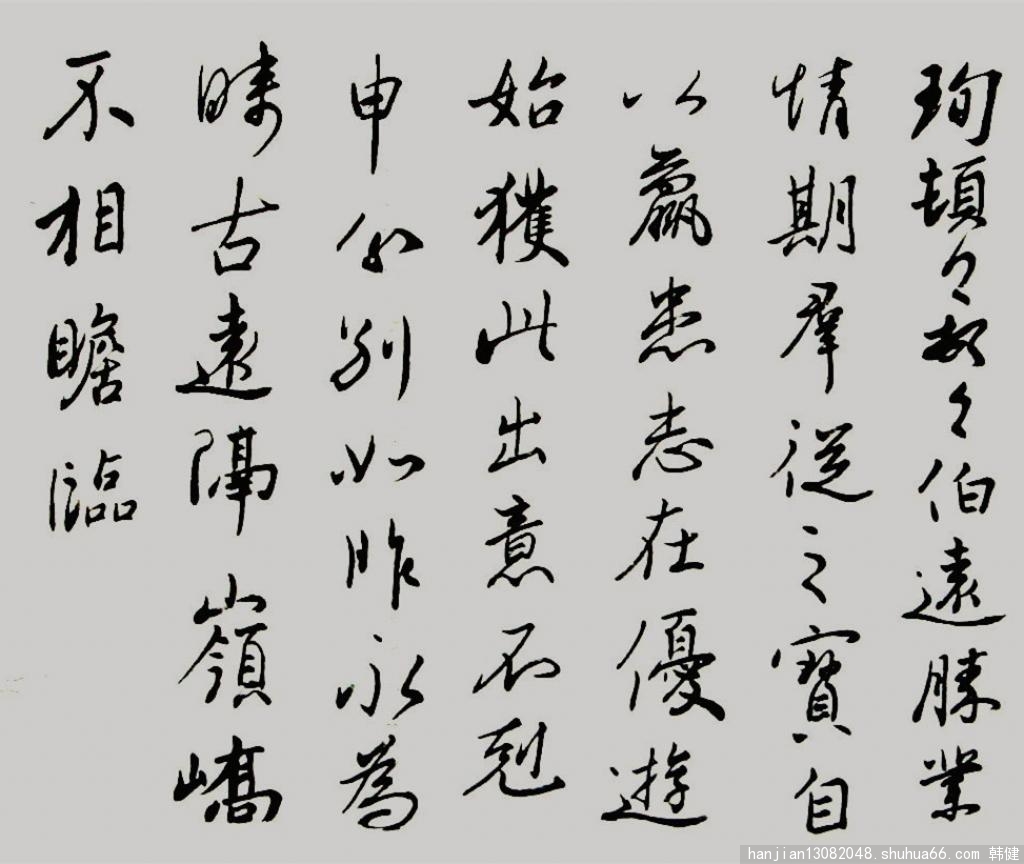 珣頓々首々伯遠勝業
情期羣從之寶自
以羸患志在優遊
始獲此出意不剋
申分別如昨永為
疇古遠隔嶺嶠
不相瞻臨
hanjian13082048.shuhua66.com 韩健